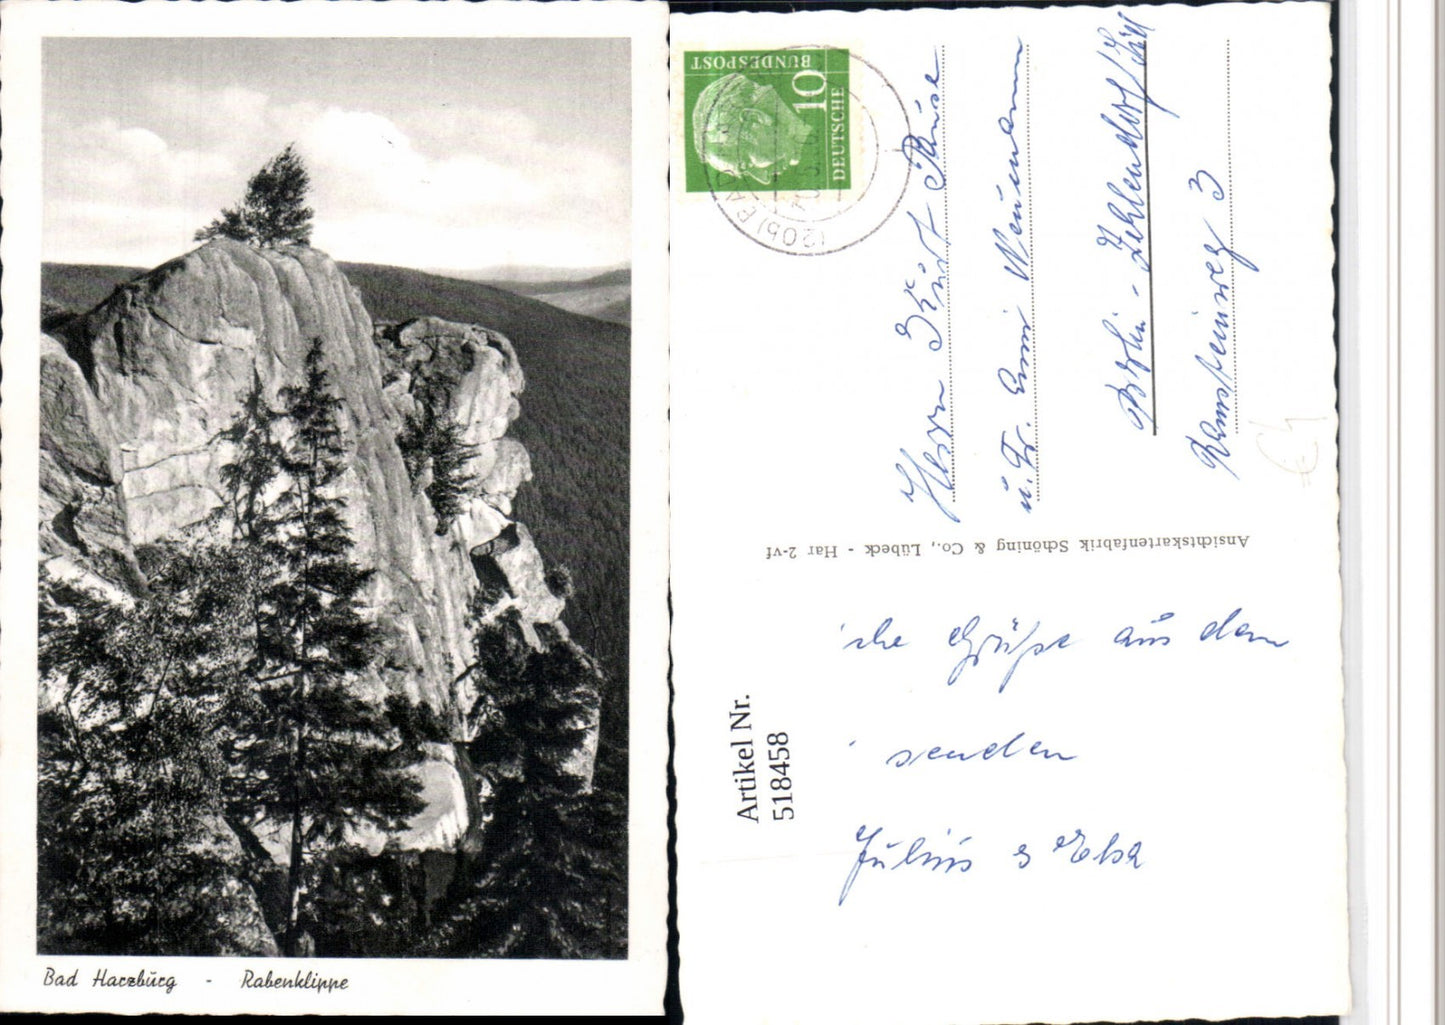 Bad Harzburg - Rabenklippe
DEUTSCHE
BUNDESPOST
10
(20b) BAD
Herrn Kurt Kruse
u. Fr. Emmi Neumann
Berlin - Zehlendorf
3
Ansichtskartenfabrik Schöning & Co., Lübeck - Har 2-vf
Grüße aus dem
senden
Julius & Elsa
Artikel Nr.
518458